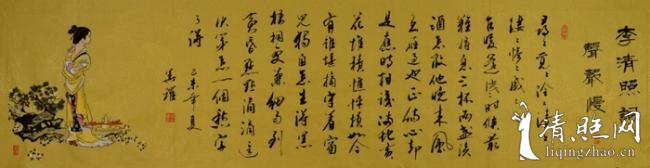 李清照詞
聲聲慢
尋々覓々冷々清
々悽々慘々戚々
乍暖還寒時候最
難將息三杯兩盞淡
酒怎敵他晚來風
急雁過也正傷心卻
是舊時相識滿地黃
花堆積憔悴損如今
有誰堪摘守著窗
兒獨自怎生得黑
梧桐更兼細雨到
黃昏點點滴滴這
次第怎一個愁字
了得
清旺网
liqingzhao.cn